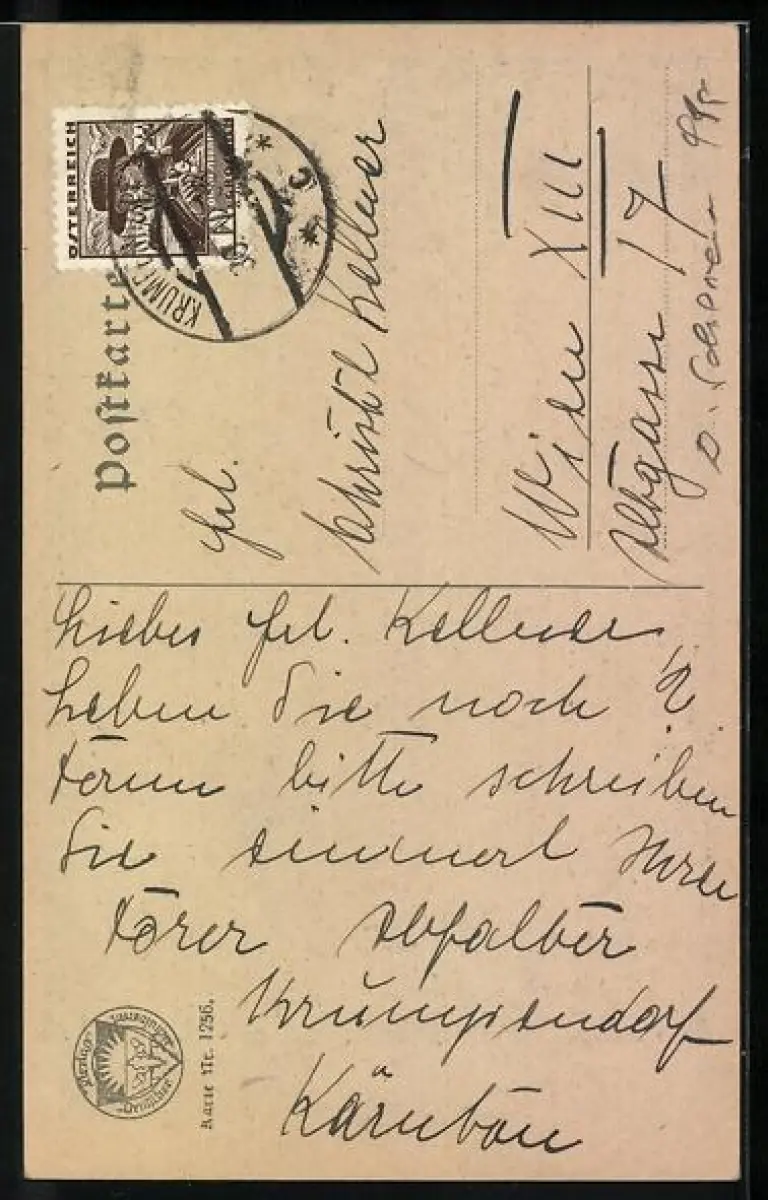 Postkarte
ÖSTERREICH
KRUMPENDORF
Frl.
Christl Kellner
Wien XIII
Altgasse 17
Liebes Frl. Kellner
Leben Sie noch?
wenn bitte schreiben
Sie einmal Ihrer
Krumpendorf
Kärnten
Karte Nr. 1256.